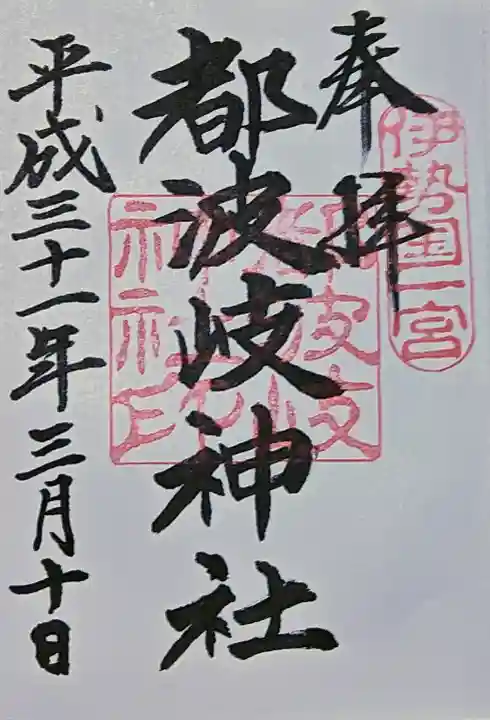 奉拝
伊勢国一宮
都波岐神社
平成三十一年三月十日